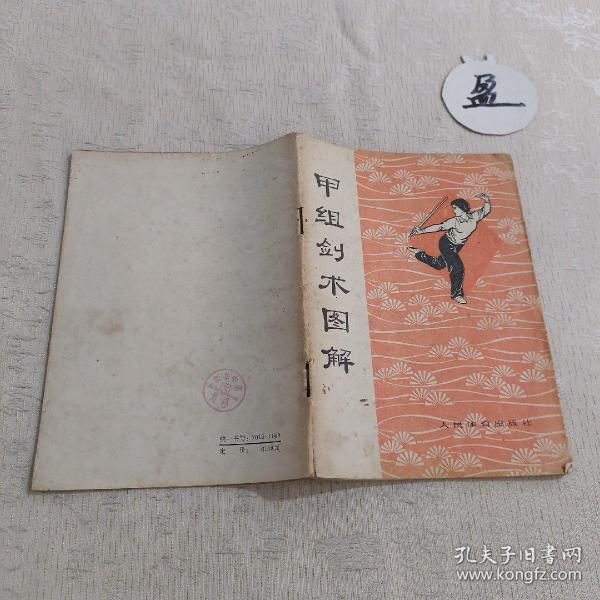 盈
甲组剑术图解
人民体育出版社
统一书号:7015·
定价:
孔夫子旧书网
www.kongfz.com